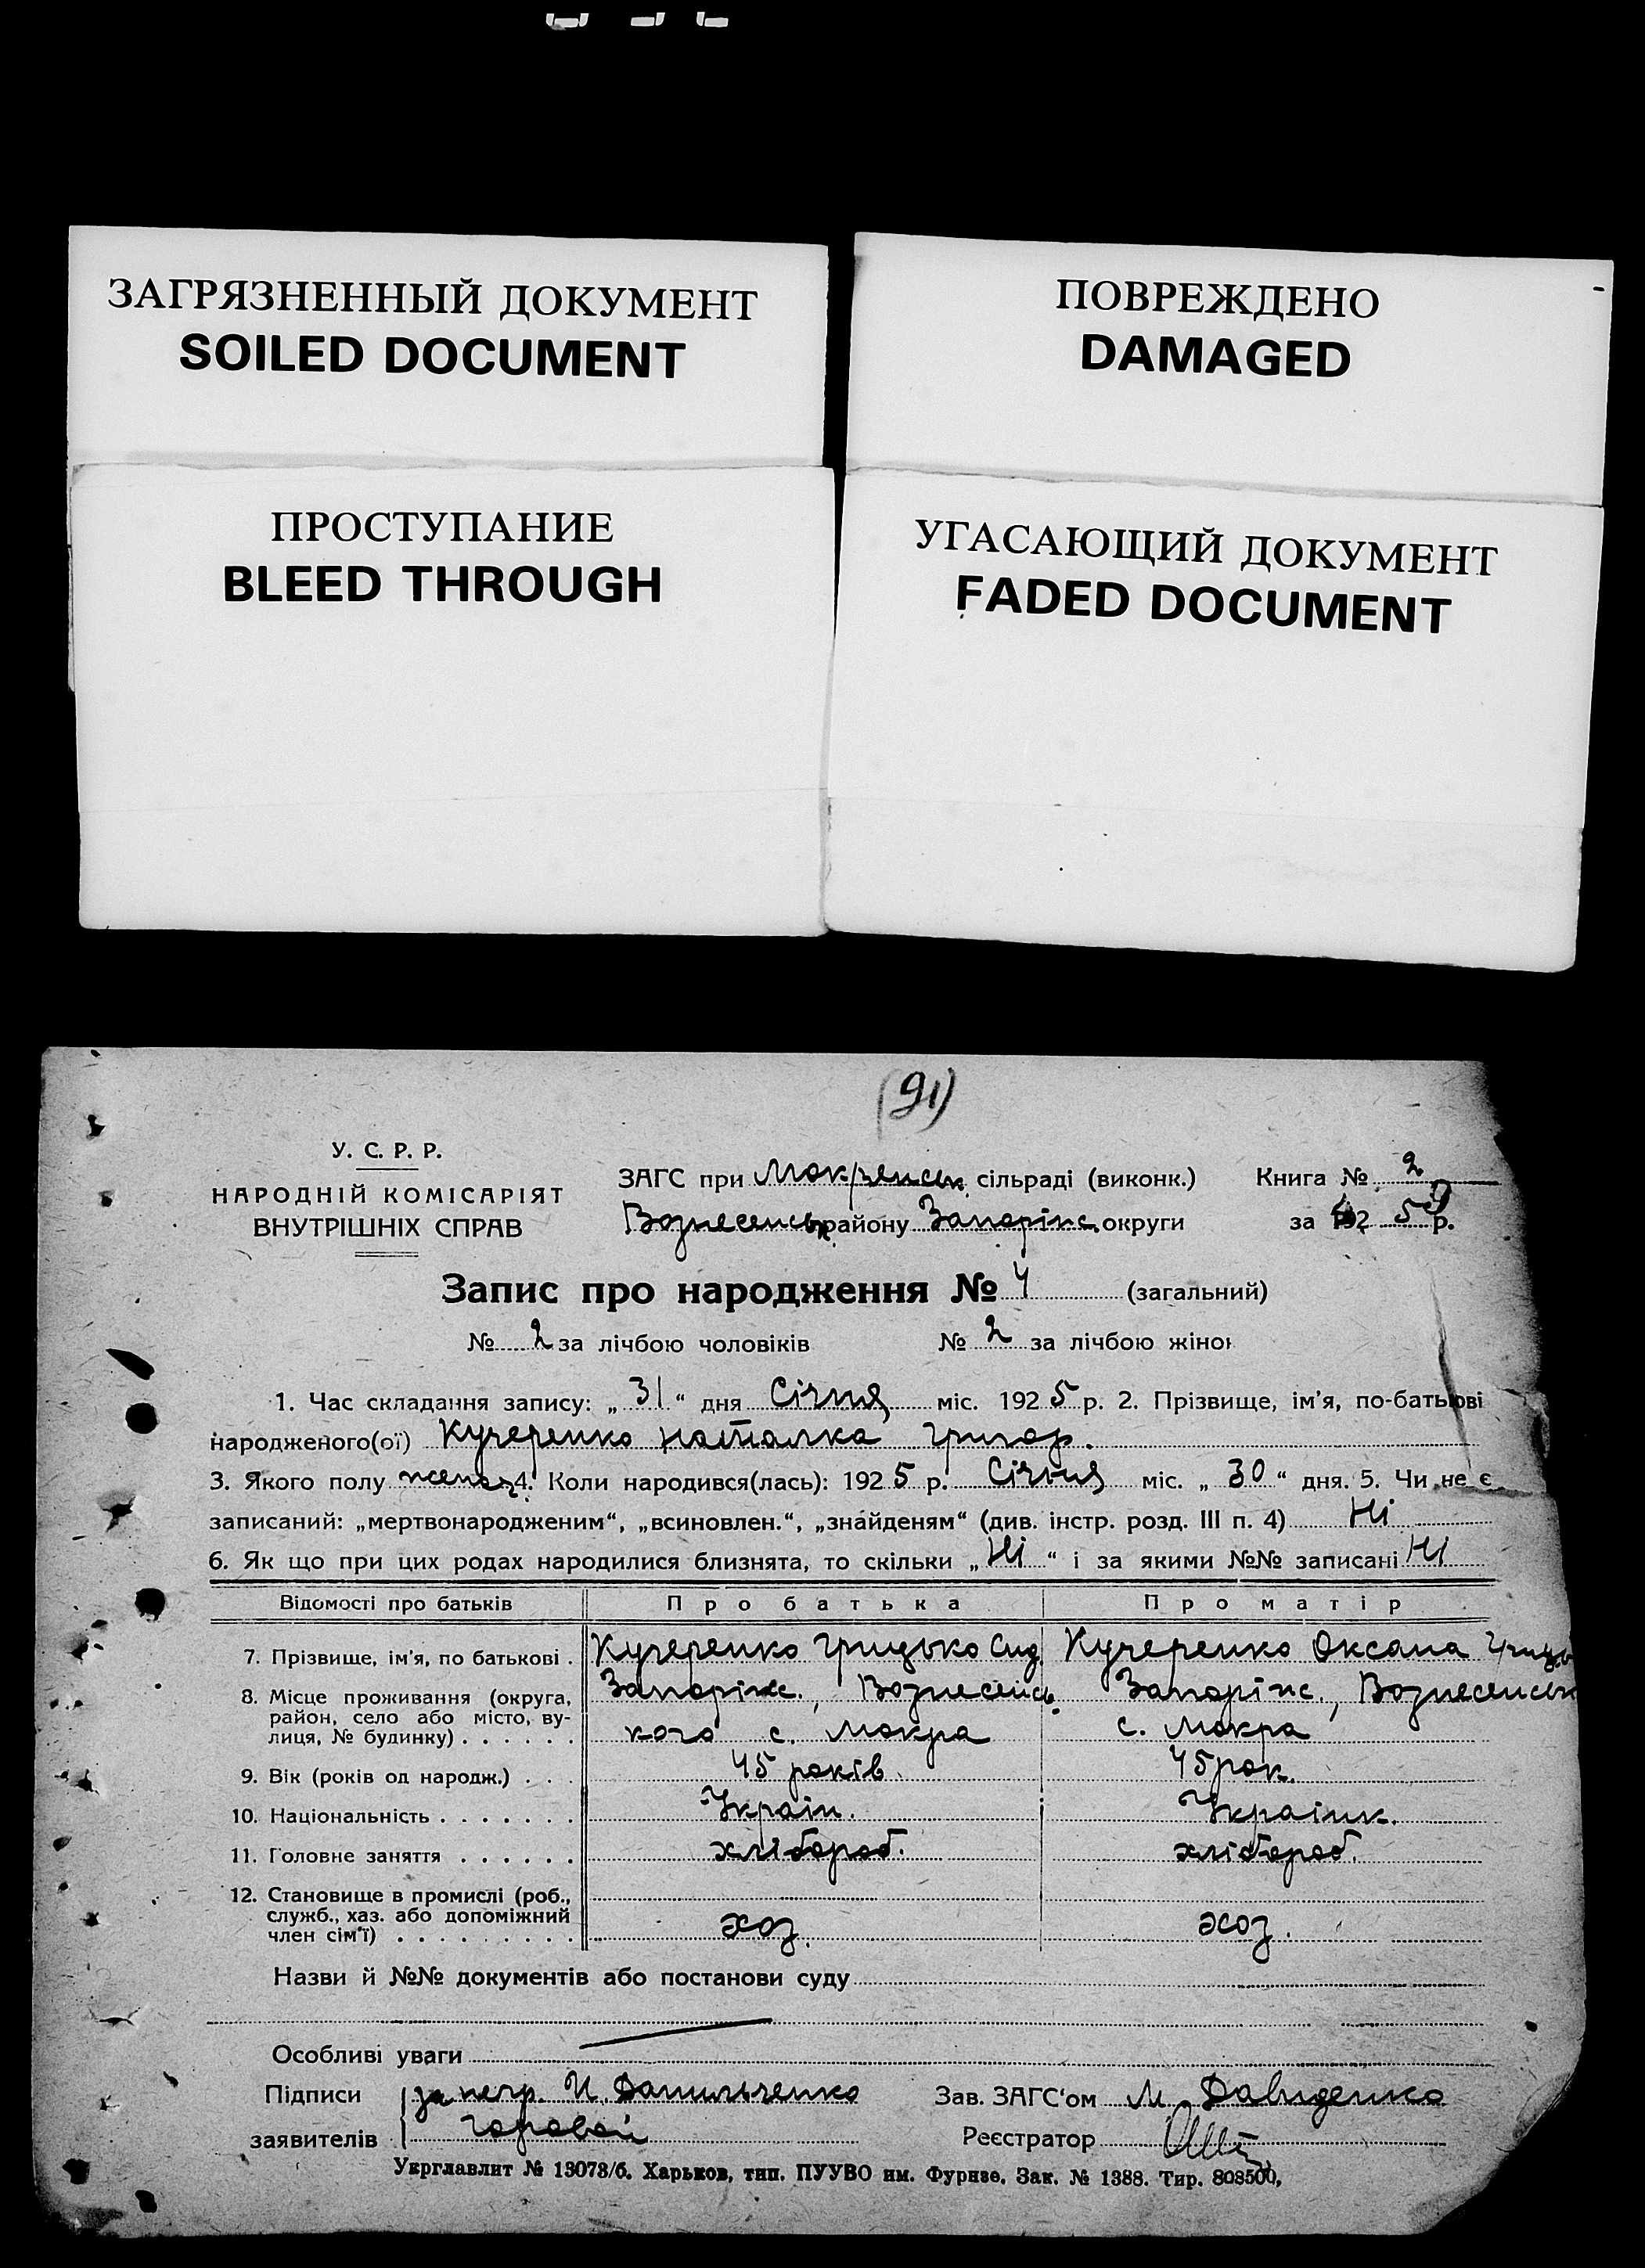 ЗАГРЯЗНЕННЫЙ ДОКУМЕНТ
SOILED DOCUMENT
ПОВРЕЖДЕНО
DAMAGED
ПРОСТУПАНИЕ
BLEED THROUGH
УГАСАЮЩИЙ ДОКУМЕНТ
FADED DOCUMENT
(91)
У. С. Р. Р.
НАРОДНІЙ КОМІСАРІЯТ
ВНУТРІШНІХ СПРАВ
ЗАГС при Мокрянськ. сільраді (виконк.)
Вознесенськ. району Запоріж. округи
Книга № 2
за 192 5 р.
Запис про народження № 4 (загальний)
№ 2 за лічбою чоловіків № 2 за лічбою жінок
1. Час складання запису: „ 31 “ дня Січня міс. 192 5 р. 2. Прізвище, ім'я, по-батькові
народженого(ої) Кучеренко Наталка Григор.
3. Якого полу женс. 4. Коли народився(лась): 192 5 р. Січня міс. „ 30 “ дня. 5. Чи не є
записаний: „мертвонародженим“, „всиновлен.“, „знайденям“ (див. інстр. розд. III п. 4) Ні
6. Як що при цих родах народилися близнята, то скільки „ Ні “ і за якими №№ записані Ні
Відомості про батьків Про батька Про матір
7. Прізвище, ім'я, по батькові . Кучеренко Грицько Сид. Кучеренко Оксана Гриць
8. Місце проживання (округа, район, село або місто, вулиця, № будинку) . . . . . . Запоріж., Вознесенсь Запоріж., Вознесенськ
кого с. Мокра с. Мокра
9. Вік (років од народж.) . . . 45 років 45 рок.
10. Національність . . . . . . . Україн. Українк.
11. Головне заняття . . . . . . хлібороб. хлібороб.
12. Становище в промислі (роб.,
служб., хаз. або допоміжний
член сім'ї) . . . . . . . . . хоз. хоз.
Назви й №№ документів або постанови суду
Особливі уваги
Підписи за негр. И. Данильченко Зав. ЗАГС‘ом М Давиденко
заявителів Горовой Реєстратор
Укрглавлит № 13073/б. Харьков, тип. ПУУВО им. Фрунзе. Зак. № 1388. Тир. 808500,